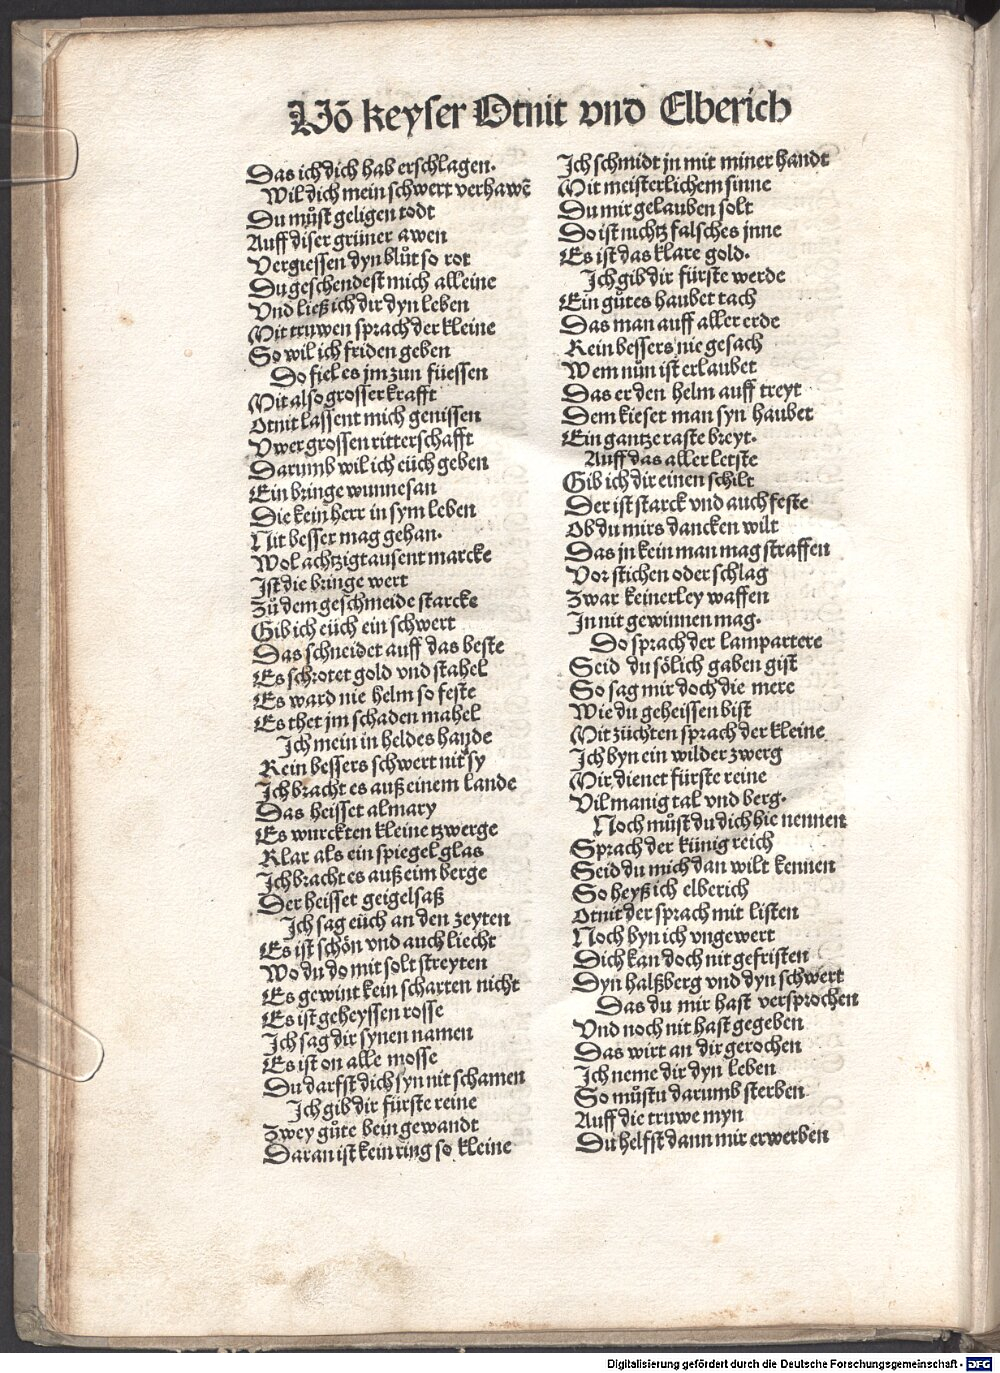 Uō keyser Otnit vnd Elberich
Das ich dich hab erschlagen.
Wil dich mein schwert verhawē
Du můst geligen todt
Auff diser grüner awen
Vergiessen dyn blůt so rot
Du geschendest mich alleine
Vnd ließ ich dir dyn leben
Mit truwen sprach der kleine
So wil ich friden geben
Do fiel es jm zun füessen
Mit also grosser krafft
Otnit lassent mich genissen
Vwer grossen ritterschafft
Darumb wil ich eüch geben
Ein bringe wunnesan
Die kein herr in sym leben
Nit besser mag gehan.
Wol achtzig tausent marcke
Ist die bringe wert
Zů dem geschmeide starcke
Gib ich eüch ein schwert
Das schneidet auff das beste
Es schrotet gold vnd stahel
Es ward nie helm so feste
Es thet jm schaden mahel
Ich mein in heldes hande
Kein bessers schwert nit sy
Ich bracht es auß einem lande
Das heisset almary
Es wurckten kleine tzwerge
Klar als ein spiegel glas
Ich bracht es auß eim berge
Der heisset geigelsaß
Ich sag eüch an den zeyten
Es ist schön vnd auch liecht
Wo du do mit solt streyten
Es gewint kein scharten nicht
Es ist geheyssen rosse
Ich sag dir synen namen
Es ist on alle mosse
Du darfst dich syn nit schamen
Ich gib dir fürste reine
Zwey gůte bein gewandt
Daran ist kein ring so kleine
Ich schmidt jn mit miner handt
Mit meisterlichem sinne
Du mir gelauben solt
Do ist nichtz falsches jnne
Es ist das klare gold.
Ich gib dir fürste werde
Ein gůtes haubet tach
Das man auff aller erde
Kein bessers nie gesach
Wem nün ist erlaubet
Das er den helm auff treyt
Dem kieset man syn haubet
Ein gantze raste breyt.
Auff das aller letste
Gib ich dir einen schilt
Der ist starck vnd auch feste
Ob du mirs dancken wilt
Das jn kein man mag straffen
Vor stichen oder schlag
Zwar keinerley waffen
In nit gewinnen mag.
Do sprach der lampartere
Seid du sölich gaben gist
So sag mir doch die mere
Wie du geheissen bist
Mit züchten sprach der kleine
Ich byn ein wilder zwerg
Mir dienet fürste reine
Vil manig tal vnd berg.
Noch můst du dich hie nennen
Sprach der künig reich
Seid du mich dan wilt kennen
So heyß ich elberich
Otnit der sprach mit listen
Noch byn ich vngewert
Dich kan doch nit gefristen
Dyn halßberg vnd dyn schwert
Das du mir hast versprochen
Vnd noch nit hast gegeben
Das wirt an dir gerochen
Ich neme dir dyn leben
So můstu darumb sterben
Auff die truwe myn
Du helfst dann mir erwerben
Digitalisierung gefördert durch die Deutsche Forschungsgemeinschaft - DFG